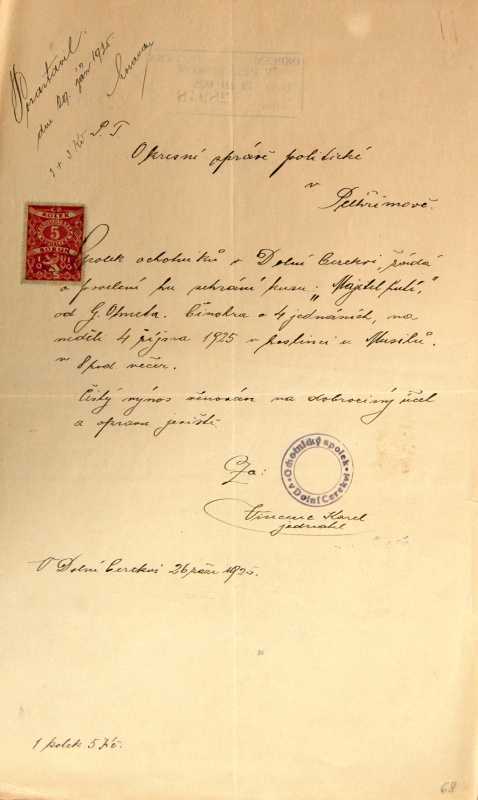 dne 29. září 1925.
3 + 3 Kč
P. T
Okresní správě politické
v
Pelhřimově.
KOLEK
5
KORUN
Spolek ochotníků v Dolní Cerekvi, žádá
o povolení ku sehrání kusu: "Majitel hutí,"
od G. Ohneta. Činohra o 4 jednáních, na
neděli 4 října 1925 v hostinci u Musilů.
v 8 hod. večer.
Čistý výnos věnován na dobročinný účel
a opravu jeviště.
Za:
Ochotnický spolek
v Dolní Cerekvi
Vincenc Karel
jednatel
V Dolní Cerekvi 26 září 1925.
1 kolek 5 Kč.
68